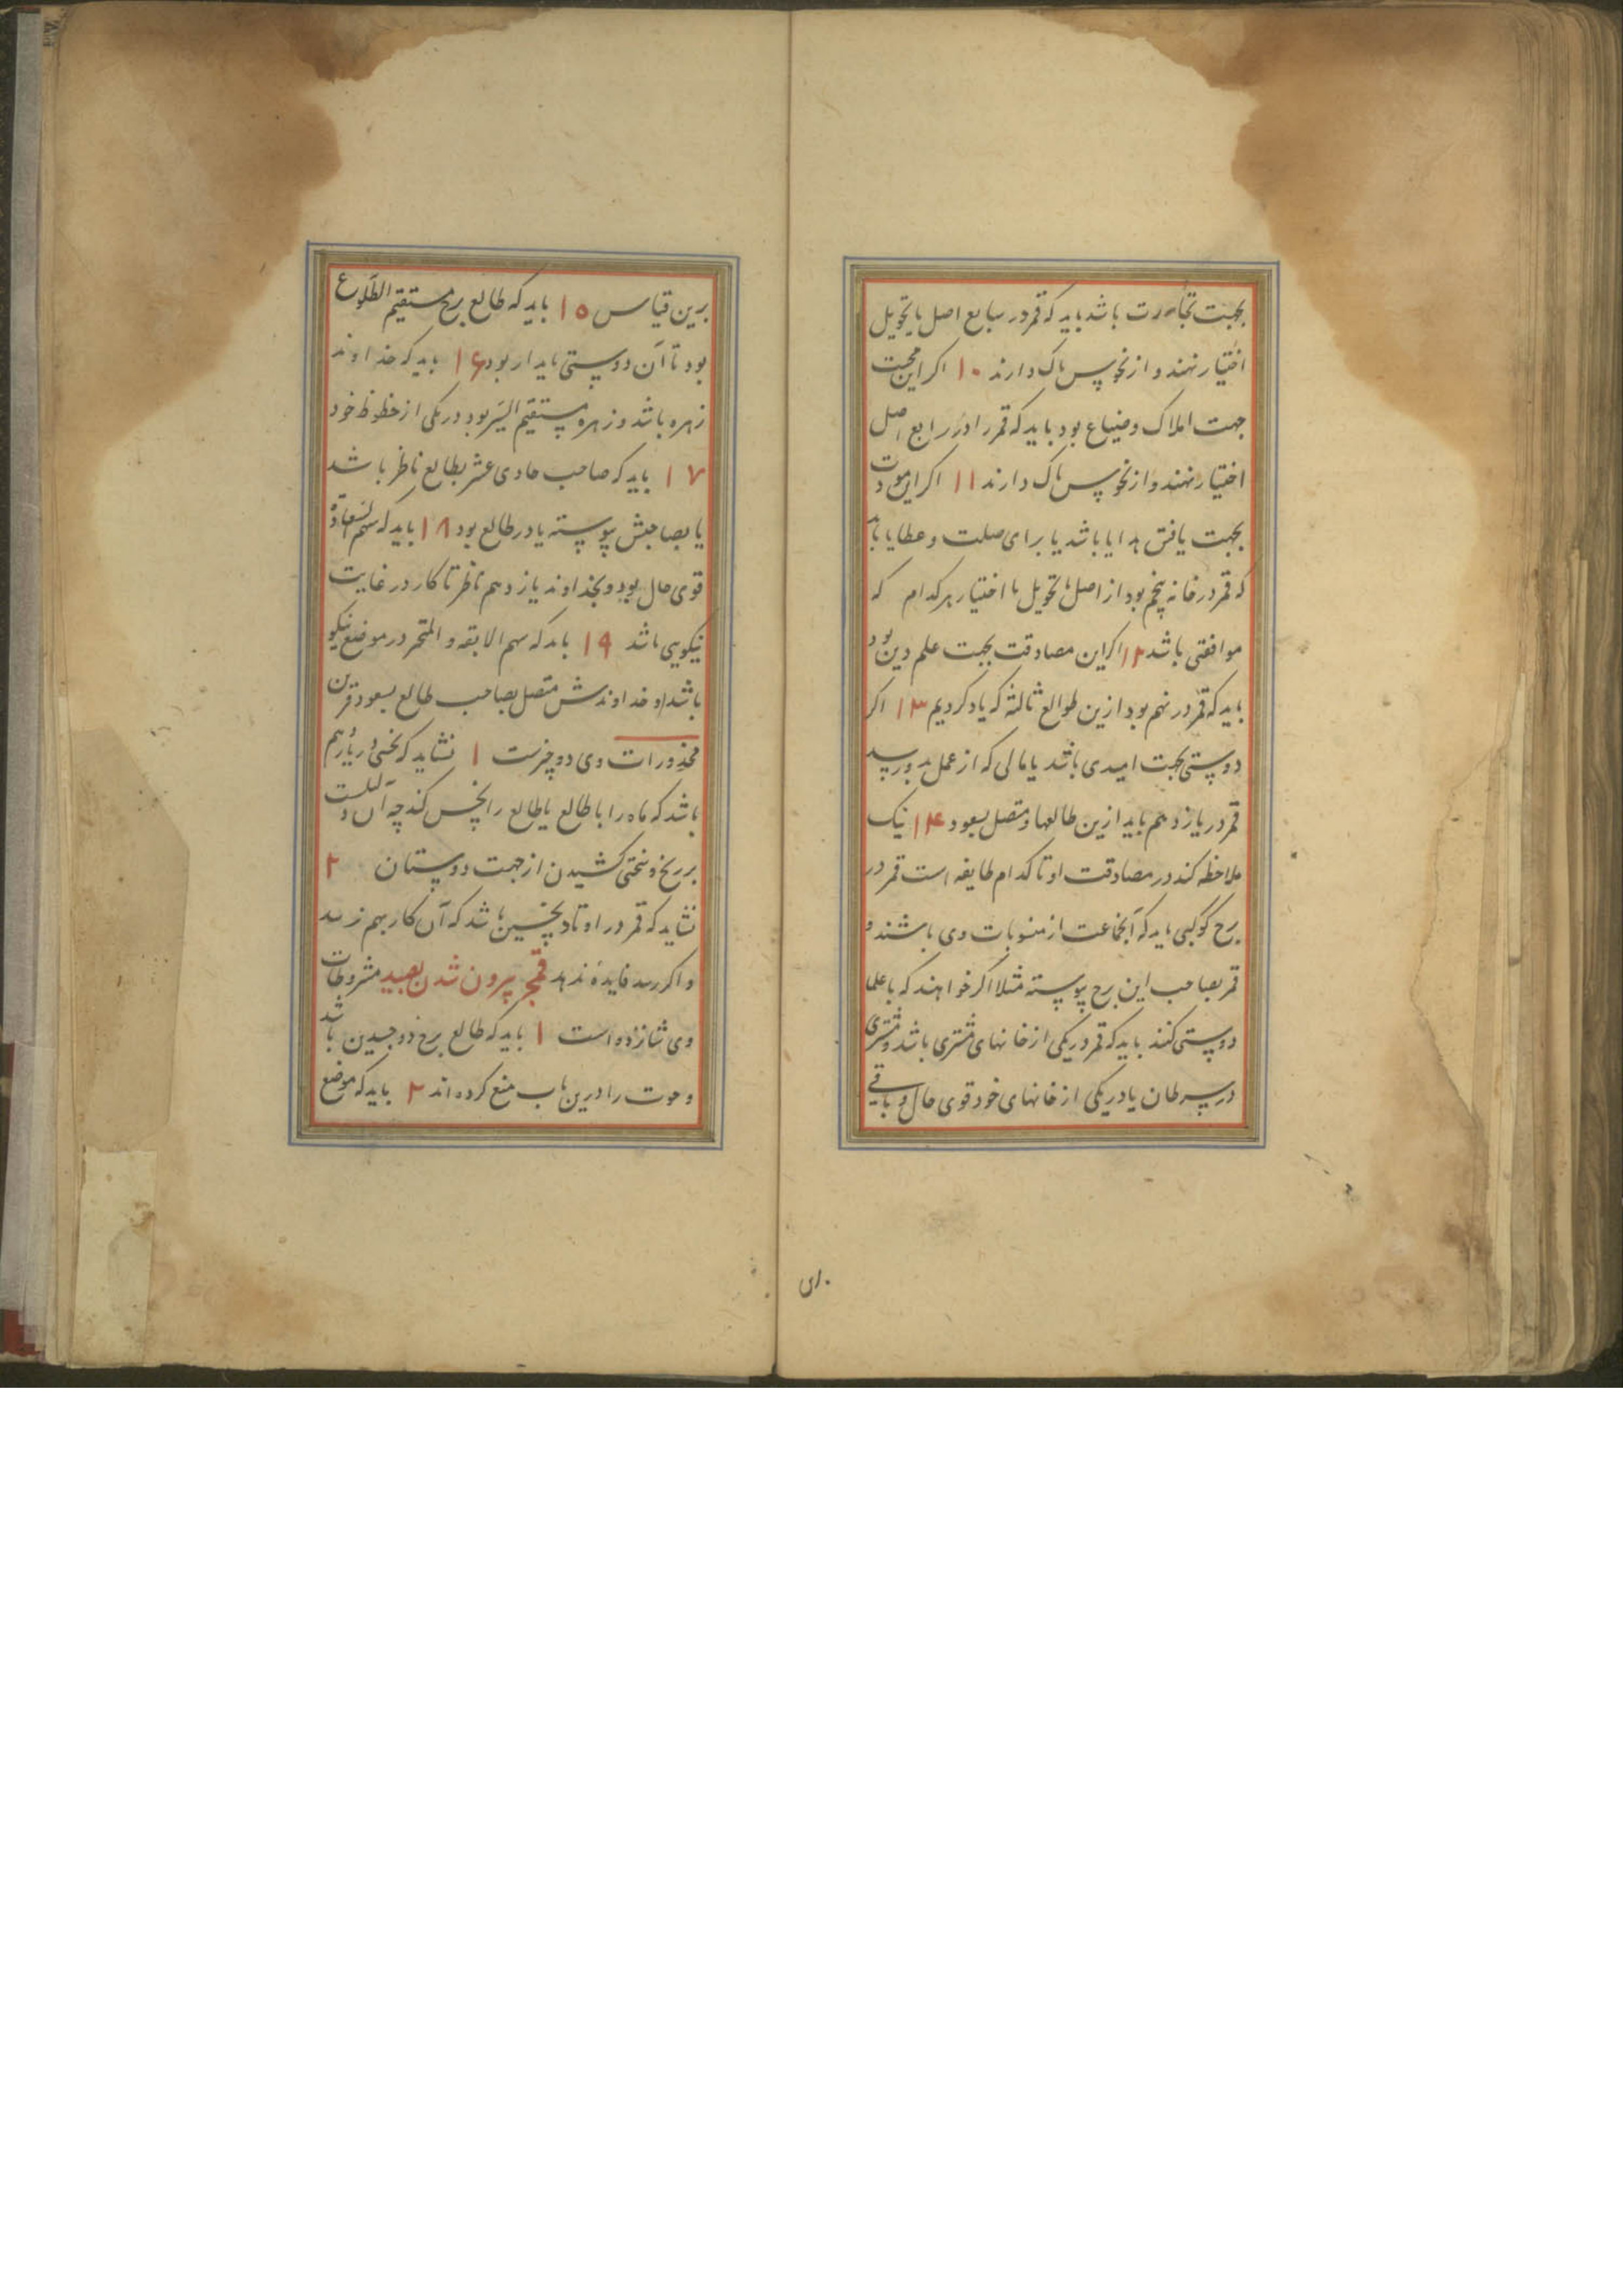 بجهت تجارت باشد باید که قمر در سابع اصل یا تحویل
اختیار نهند و از نحوس پاک دارند ۱۰ اکر این محبت
جهت املاک و ضیاع بود باید که قمر را در رابع اصل
اختیار نهند و از نحوس پاک دارند ۱۱ اکر این مودت
بجهت یافتن هدایا باشد یا برای صلت و عطایا باید
که قمر در خانه پنجم بود از اصل یا تحویل یا اختیار هر کدام که
موافقتی باشد ۱۲ اکر این مصادقت بجهت علم دین بود
باید که قمر در نهم بود ازین طوالع ثالثه که یاد کردیم ۱۳ اکر
دوستی بجهت امیدی باشد یا مالی که از عمل بدو رسد
قمر در یازدهم باید ازین طالعها و متصل بسعود ۱۴ نیک
ملاحظه کند در مصادقت او تا کدام طایفه است قمر در
برج کوکبی باید که آنجماعت از منسوبات وی باشند و
قمر بصاحب این برج پیوسته مثلا اکر خواهند که با علما
دوستی کنند باید که قمر در یکی از خانهای مشتری باشد و مشتری
در سرطان یا در یکی از خانهای خود قوی حال و باقی
برین قیاس ۱۵ باید که طالع برج مستقیم الطلوع
بود تا آن دوستی پایدار بود ۱۶ باید که خداوند
زهره باشد و زهره مستقیم السیر بود در یکی از حظوظ خود
۱۷ باید که صاحب حادی عشر بطالع ناظر باشد
یا بصاحبش پیوسته یا در طالع بود ۱۸ باید که سهم السعاده
قوی حال بود و بخداوند یازدهم ناظر تا کار در غایت
نیکویی باشد ۱۹ باید که سهم و در موضع نیکو
باشد و خداوندش متصل بصاحب طالع بسعود قرین
محذورات وی دو چیزست ۱ نشاید که نحسی در یازدهم
باشد که ماه را یا طالع را نحس کند چه آن دلالت
بر رنج و سختی کشیدن از جهت دوستان ۲
نشاید که قمر در اوتاد نحسین باشد که آن کار بهم نرسد
و اکر رسد فایده ندهد قمج بیرون شدن بصید مشروطات
وی شانزده است ۱ باید که طالع برج ذو جسدین باشد
و حوت را درین باب منع کرده اند ۲ باید که موضع